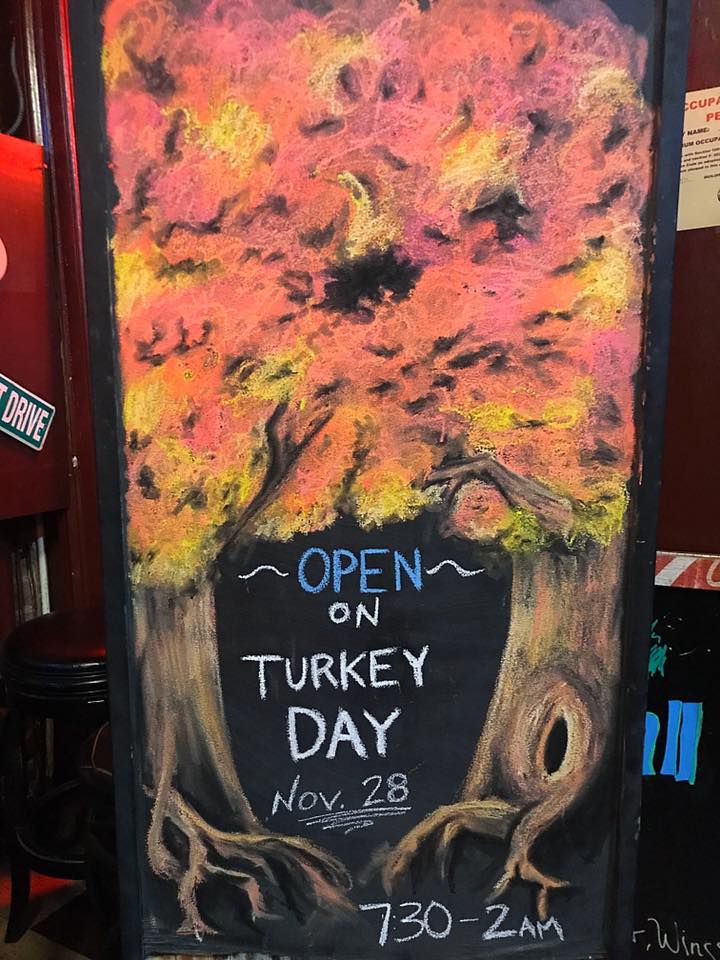 ~ OPEN ~
ON
TURKEY
DAY
Nov. 28
7:30-2AM
T DRIVE
CCUPA
PE
NAME:
UM OCCUPA
Wings